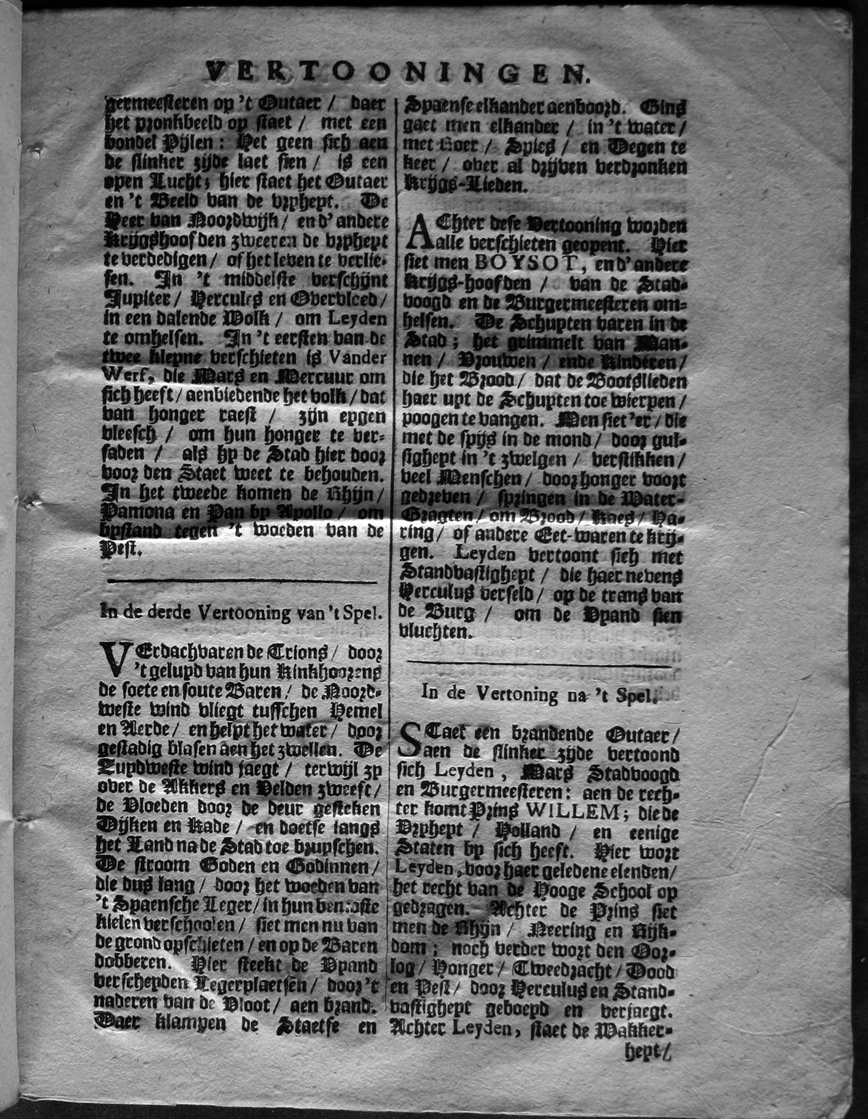 VERTOONINGEN.
germeesteren op 't Outaer / daer
het pronkbeeld op staet / met een
bondel Pijlen: Het geen sich aen
de slinker zijde laet sien / is een
open Lucht; hier staet het Outaer
en 't Beeld van de vryheyt. De
Heer van Noordwijk / en d' andere
Krijgshoofden zweeren de vryheyt
te verdedigen / of het leven te verlie-
sen. In 't middelste verschijnt
Jupiter / Hercules en Overvloed /
in een dalende Wolk / om Leyden
te omhelsen. In 't eersten van de
twee kleyne verschieten is Vander
Werf, die Mars en Mercuur om
sich heeft / aenbiedende het volk / dat
van honger raest / zijn eygen
vleesch / om hun honger te ver-
saden / als hy de Stad hier door
voor den Staet weet te behouden.
In het tweede komen de Rhijn /
Pamona en Pan by Apollo / om
bystand tegen 't woeden van de
Pest.
In de derde Vertooning van 't Spel.
VErdachvaren de Trions / door
't geluyd van hun Kinkhoorens
de soete en soute Baren / de Noord-
weste wind vliegt tusschen Hemel
en Aerde / en helpt het water / door
gestadig blasen aen het zwellen. De
Zuydweste wind jaegt / terwijl zy
over de Akkers en Velden zweeft /
de Vloeden door de deur gesteken
Dijken en Kade / en doetse langs
het Land na de Stad toe bruyschen.
De stroom Goden en Godinnen /
die dus lang / door het woeden van
't Spaensche Leger / in hun benaeste
kielen verschoolen / siet men nu van
de grond opschieten / en op de Baren
dobberen. Hier steekt de Vyand
verscheyden Legerplaetsen / door 't
naderen van de Vloot / aen brand.
Daer klampen de Staetse en
Spaense elkander aenboord. Gins
gaet men elkander / in 't water /
met Roer / Spies / en Degen te
keer / over al drijven verdronken
Krijgs-Lieden.
AChter dese Vertooning worden
alle verschieten geopent. Hier
siet men BOYSOT, en d' andere
Krijgs-hoofden / van de Stad-
voogd en de Burgermeesteren om-
helsen. De Schuyten varen in de
Stad; het grimmelt van Man-
nen / Vrouwen / ende Kinderen /
die het Brood / dat de Bootslieden
haer uyt de Schuyten toe wierpen /
poogen te vangen. Men siet 'er / die
met de spijs in de mond / door gul-
sigheyt in 't zwelgen / verstikken /
veel Menschen / door honger voort
gedreven / springen in de Water-
Gragten / om Brood / Kaes / Ha-
ring / of andere Eet-waren te krij-
gen. Leyden vertoont sich met
Standvastigheyt / die haer nevens
Herculus verseld / op de trans van
de Burg / om de Vyand sien
vluchten.
In de Vertoning na 't Spel.
STaet een brandende Outaer /
aen de slinker zijde vertoond
sich Leyden, Mars Stadvoogd
en Burgermeesteren: aen de rech-
ter komt Prins WILLEM; die de
Vryheyt / Holland / en eenige
Staten by sich heeft. Hier wort
Leyden, voor haer geledene elenden /
het recht van de Hooge School op
gedragen. Achter de Prins siet
men de Rhijn / Neering en Rijk-
dom; noch verder wort den Oor-
log / Honger / Tweedracht / Dood
en Pest / door Herculus en Stand-
vastigheyt geboeyd en verjaegt.
Achter Leyden, staet de Wakker-
heyt /